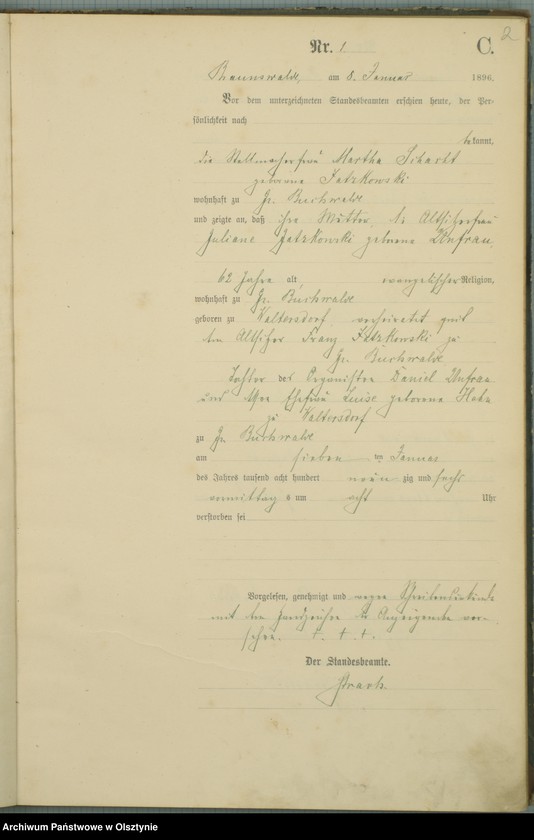 2
Nr. 1 C.
Braunswalde, am 8. Januar 1896.
Vor dem unterzeichneten Standesbeamten erschien heute, der Per-
sönlichkeit nach
bekannt,
die Stellmacherfrau Martha Scharht
geborene Jatzkowski
wohnhaft zu Gr. Buchwalde
und zeigte an, daß ihre Mutter, die Altsitzerfrau
Juliane Jatzkowski geborene Unfrau,
62 Jahre alt evangelischer Religion,
wohnhaft zu Gr. Buchwalde
geboren zu Waltersdorf, verheiratet mit
dem Altsitzer Franz Jatzkowski zu
Gr. Buchwalde
Tochter des Organisten Daniel Unfrau
und Ehefrau Luise geborene
zu Waltersdorf
zu Gr. Buchwalde
am sieben ten Januar
des Jahres tausend acht hundert neun zig und sechs
vormittag s um acht Uhr
verstorben sei
Vorgelesen, genehmigt und wegen Schreibensunkunde
mit dem Handzeichen der Anzeigenden ver-
sehen. † † †
Der Standesbeamte.
Archiwum Państwowe w Olsztynie